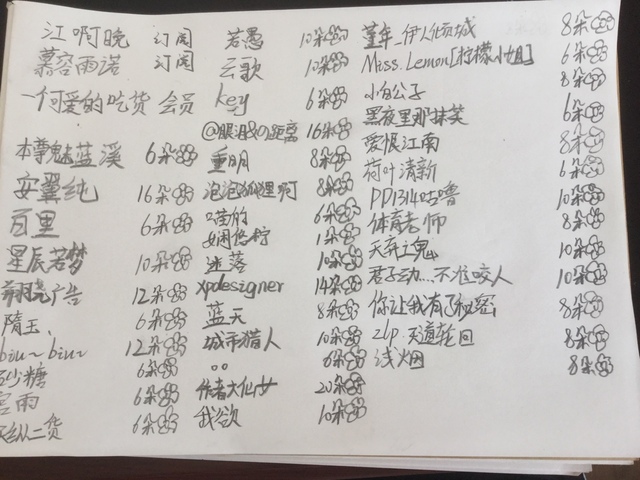 江啊晚 订阅
慕容雨诺 订阅
一何爱的吃货 会员
本尊魅蓝溪 6朵
安翼纯 16朵
百里 6朵
星辰若梦 10朵
翔亮广告 12朵
隋玉、 6朵
biu~biu~ 12朵
砂糖 6朵
宫雨 6朵
天纵二货 6朵
若愚 10朵
云歌 10朵
key 6朵
@眼泪&の距离 16朵
重明 8朵
泡泡狐狸啊 8朵
喵的 6朵
娴悠柠 1朵
迷落 10朵
xpdesigner 14朵
蓝天 8朵
城市猎人 10朵
。。 6朵
作者大仙女 20朵
我欲 10朵
董车_伊人倾城 8朵
Miss.Lemon[柠檬小姐] 6朵
小白公子 8朵
黑夜里那抹笑 6朵
爱恨江南 8朵
荷叶清新 6朵
PD1314咕噜 10朵
体育老师 8朵
天弃之鬼 10朵
君子动...不准咬人 10朵
你让我有了秘密 8朵
zlp.天道轮回 8朵
浅烟 8朵